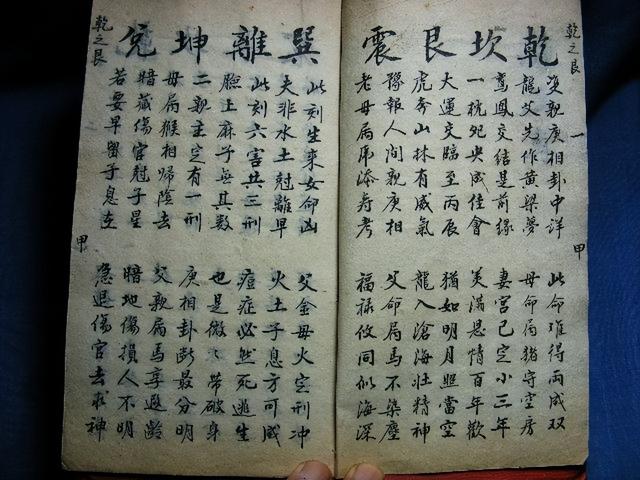 乾之艮 一 甲
乾坎艮震
雙親庚相卦中詳 此命难得両成双
龍父先作黃梁夢 母命局猪守空房
鸞鳳交結是前緣 妻宮已定小三年
一枕夗央成佳會 美滿恩情百年歡
大運交臨至丙辰 猶如明月照當空
虎奔山林有威氣 龍入滄海壮精神
豫報人間親庚相 父命局馬不染塵
老母局乕添寿考 福禄攸同似海深
巽離坤兌
此刻生來女命凶 父金母火定刑冲
夫非水土尅離早 火土子息方可成
此刻六害共三刑 痘症必然死逃生
臉上麻子無其数 也是微々帶破身
二親主定有一刑 庚相卦断最分明
母局猴相歸陰去 父親局馬享遐齡
暗藏傷官尅子星 暗地傷損人不明
若要早留子息在 急退傷官去求神
乾之艮 甲